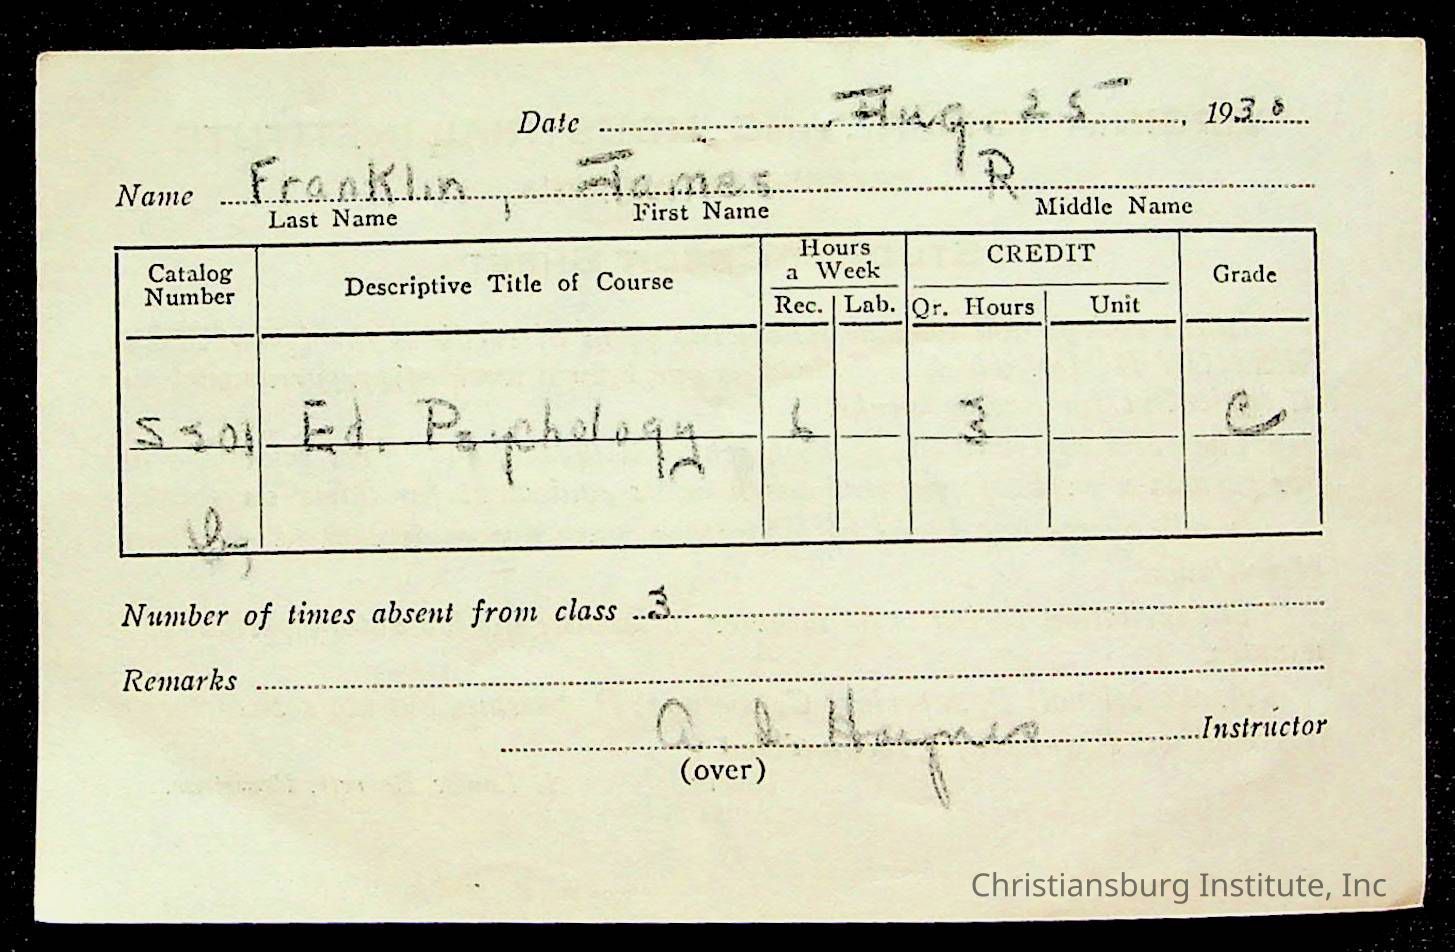 Date Aug. 25, 1938
Name Franklin, James R
Last Name First Name Middle Name
Catalog Number Descriptive Title of Course Hours a Week Rec. Lab. CREDIT Qr. Hours Unit Grade
S301 Ed. Psychology 6 3 C
b,
Number of times absent from class 3
Remarks
A. D. Haynes Instructor
(over)
Christiansburg Institute, Inc